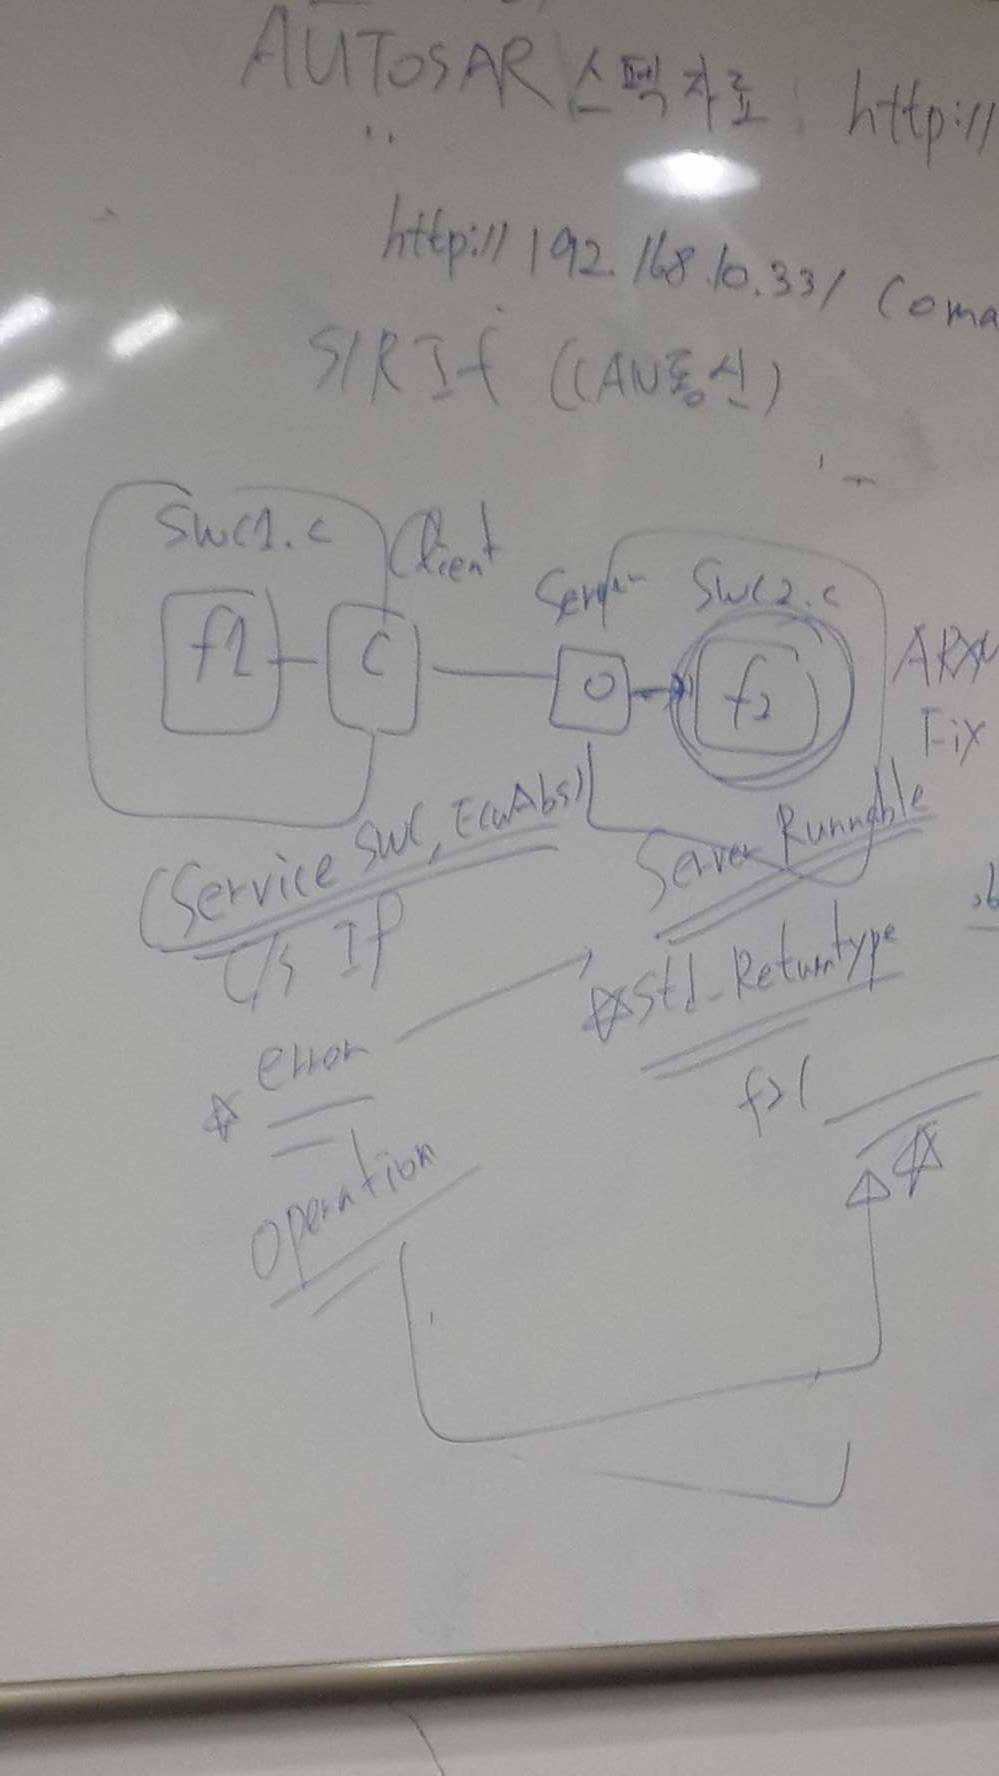 AUTOSAR 스펙 자료 : http://
http://192.168.10.33/ Coma
S/R If (CAN통신)
SWC1.c
Client
Server
SWC2.c
f1
C
O
f2
Fix
(Service SWC, EcuAbs)
C/S If
Server Runnable
error
☆Std_Returntype
☆
f2(
☆
operation